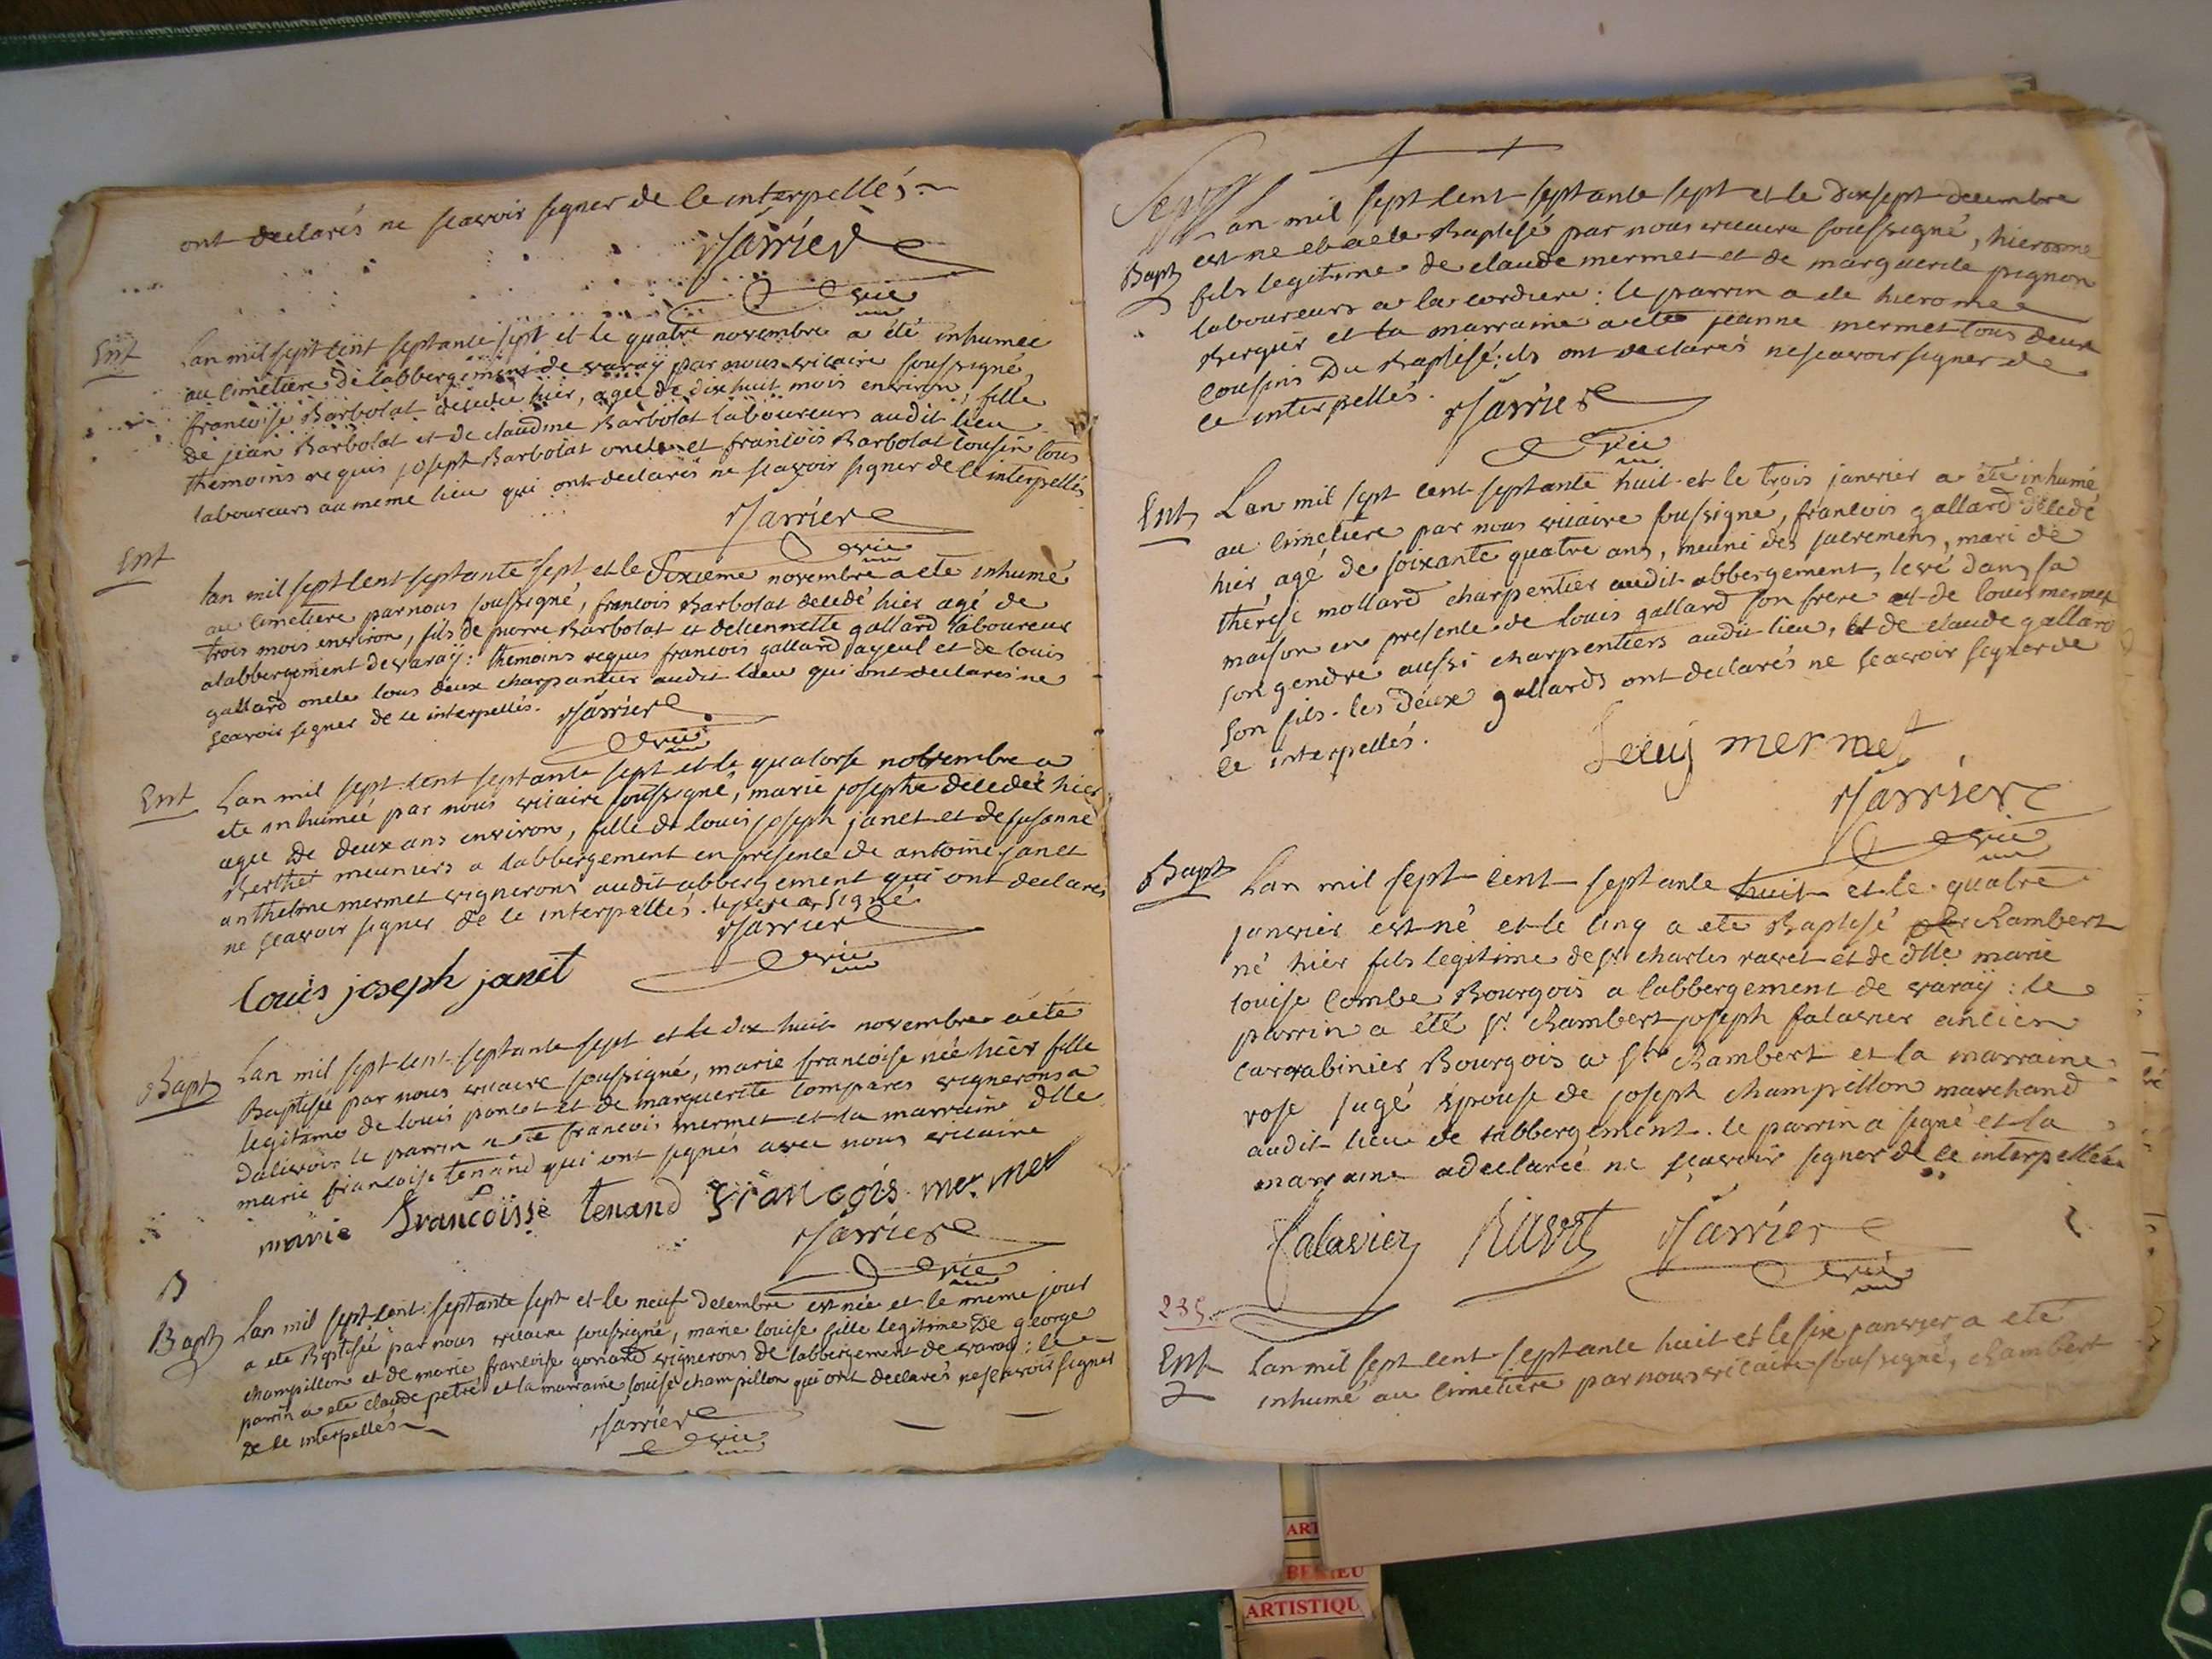 ont declarés ne scavoir signer de ce interpellés
Jarrier
vic
Ent
Lan mil sept cent septante sept et le quatre novembre a été inhumée
au cimetiere de labbergement de varaÿ par nous vicaire soussigné,
francoise Barbolat decedée hier, agée de dixhuit mois environ, fille
de jean Barbolat et de claudine Barbolat laboureurs audit lieu
themoins requis joseph Barbolat oncle et francois Barbolat cousin tous
laboureurs au meme lieu qui ont declarés ne scavoir signer de ce interpellés
Jarrier
vic
Ent
lan mil sept cent septante sept et le sixieme novembre a ete inhumé
au cimetiere par nous soussigné, francois Barbolat decedé hier agé de
trois mois environ, fils de pierre Barbolat et detiennette gallard laboureurs
alabbergement de varaÿ: themoins requis francois gallard ayeul et de louis
gallard oncle tous deux charpantier audit lieu qui ont declarés ne
scavoir signer de ce interpellés. Jarrier
vic
Ent
Lan mil sept cent septante sept et le quatorse novembre a
ete inhumée par nous vicaire soussigné, marie josephe decedée hier
agée de deux ans environ, fille de louis joseph janet et de susanne
Berthet meuniers a labbergement en presence de antoine janet
anthelme mermet vignerons audit abbergement qui ont declarés
ne scavoir signer de ce interpellés. le pere a signé
Jarrier
vic
louis joseph janet
Bapt
Lan mil sept cent septante sept et le dix huit novembre a été
Baptisée par nous vicaire soussigné, marie francoise née hier fille
legitime de louis poncet et de marguerite compares vignerons a
dalivoir le parrin a été francois mermet et la marraine dlle
marie francoise tenand qui ont signés avec nous vicaire
marie francoisse tenand François mermet
Jarrier
vic
B
Bapt
Lan mil sept cent septante sept et le neuf decembre est née et le meme jour
a ete Bptisée par nous vicaire soussigné, marie louise fille legitime de george
champillon et de marie francoise gonand vignerons de labbergement de varaÿ: le
parrin a ete claude petre et la marraine louise champillon qui ont declarés ne scavoir signer
de ce interpellés
Jarrier
vic
Lan mil sept cent septante sept et le dixsept decembre
Bapt
est ne et a ete Baptisé par nous vicaire soussigné, hierosme
fils legitime de claude mermet et de marguerite pignon
laboureurs a la cordiere: le parrin a ete hierome
Bergier et la marraine a ete jeanne mermet tous deux
cousins Du Baptisé: ils ont declarés ne scavoir signer de
ce interpellés. Jarrier
vic
Ent
Lan mil sept cent septante huit et le trois janvier a été inhumé
au cimetiere par nous vicaire soussigné, francois gallard decedé
hier, agé de soixante quatre ans, meuni des sacremens, mari de
therese mollard charpentier audit abbergement, levé dans sa
maison en presence de louis gallard son frere et de louis mermet
son gendre aussi charpentiers audit lieu, et de claude gallard
son fils. les deux gallards ont declarés ne scavoir signer de
ce interpellés.
Louy mermet
Jarrier
vic
Bapt
Lan mil sept cent septante huit et le quatre
janvier est né et le cinq a ete Baptisé par Rambert
né hier fils legitime de sr charles ravet et de dlle marie
louise Combe Bourgois a labbergement de varaÿ: le
parrin a été sr. Rambert joseph falavier ancien
cararabinier Bourgois a st. Rambert et la marraine
rose Jugé épouse de joseph champillon marchand
audit lieu de labbergement. le parrin a signé et la
marraine a declarée ne scavoir signer de ce interpellée
falavier RAVet Jarrier
vic
235
Ent
2
Lan mil sept cent septante huit et le six janvier a eté
inhumé au cimetiere par nous vicaire soussigné, Rambert
ART
ARTISTIQU